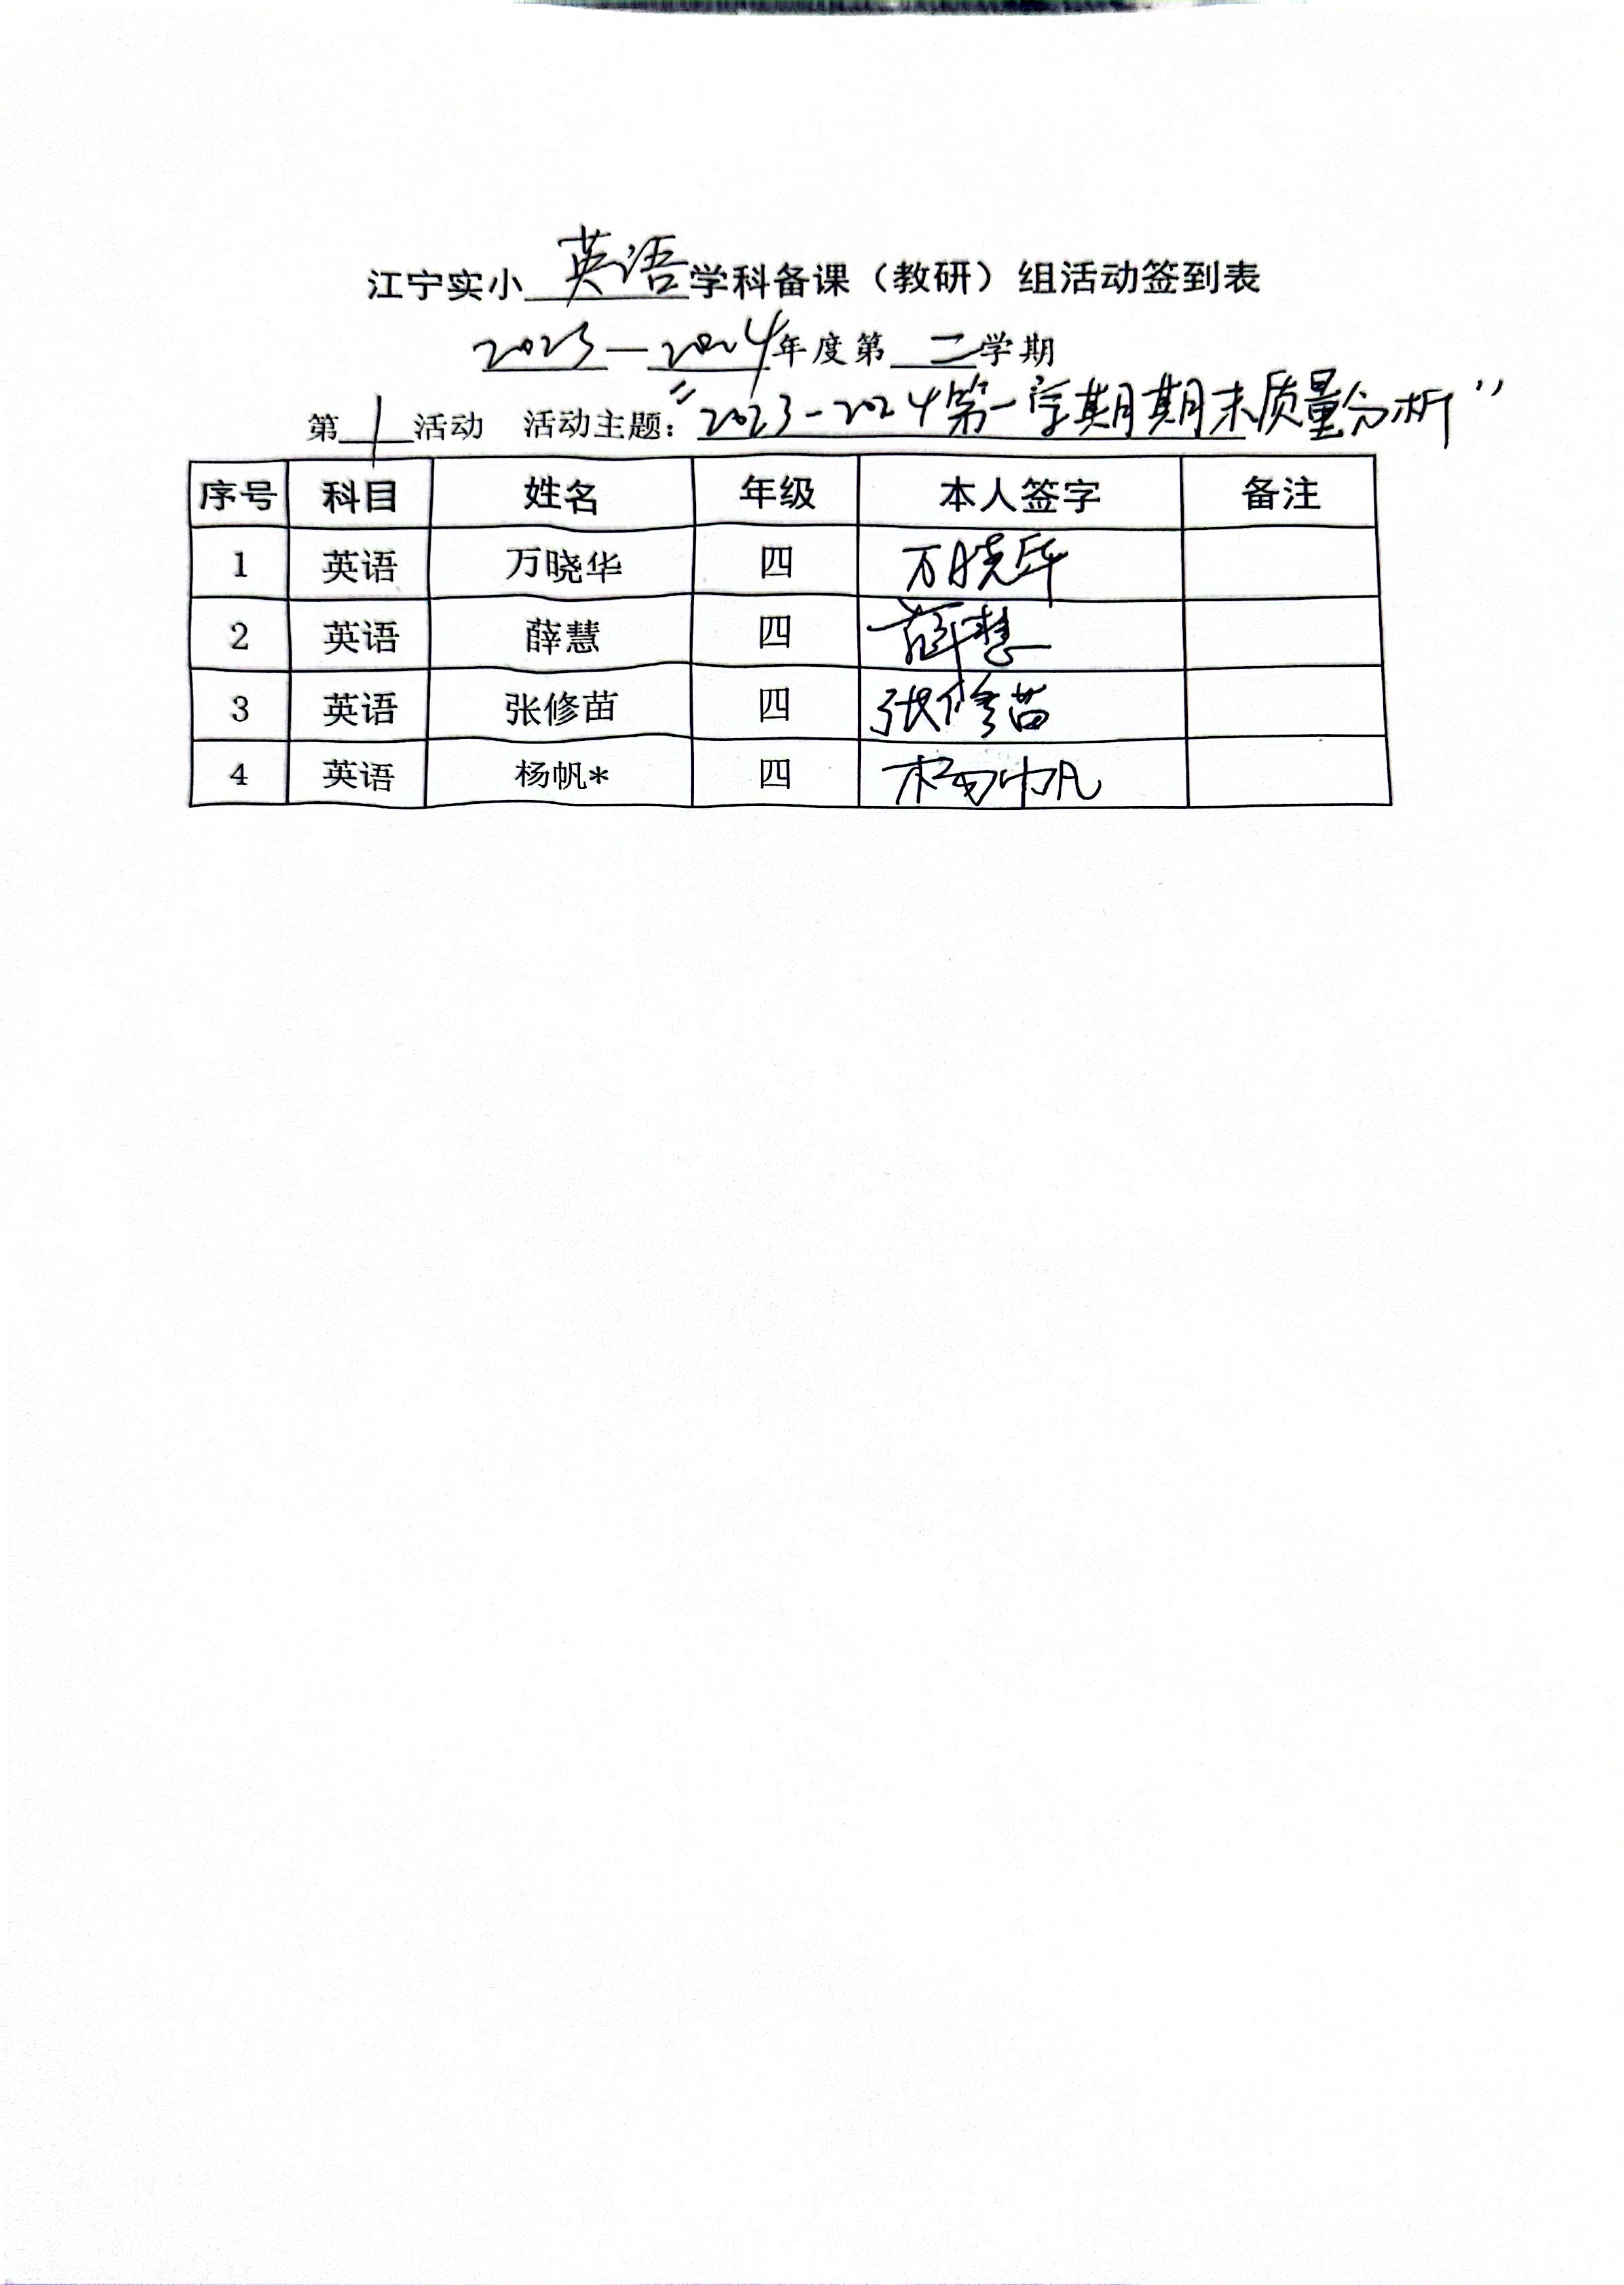 江宁实小 英语 学科备课（教研）组活动签到表
2023—2024年度第 二 学期
第 1 活动 活动主题：“2023-2024第一学期期末质量分析”
序号 科目 姓名 年级 本人签字 备注
1 英语 万晓华 四 万晓华
2 英语 薛慧 四 薛慧
3 英语 张修苗 四 张修苗
4 英语 杨帆* 四 杨帆